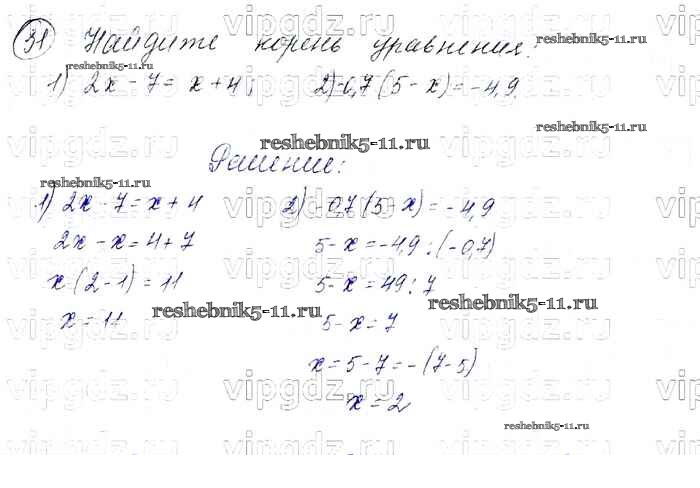 31 Найдите корень уравнения:
1) 2x - 7 = x + 4; 2) -0,7 (5 - x) = -4,9.
Решение:
1) 2x - 7 = x + 4
2x - x = 4 + 7
x (2 - 1) = 11
x = 11
2) -0,7 (5 - x) = -4,9
5 - x = -4,9 : (-0,7)
5 - x = 49 : 7
5 - x = 7
x = 5 - 7 = -(7 - 5)
x = 2
reshebnik5-11.ru
reshebnik5-11.ru
reshebnik5-11.ru
reshebnik5-11.ru
reshebnik5-11.ru
reshebnik5-11.ru
reshebnik5-11.ru
vipgdz.ru
vipgdz.ru
vipgdz.ru
vipgdz.ru
vipgdz.ru
vipgdz.ru